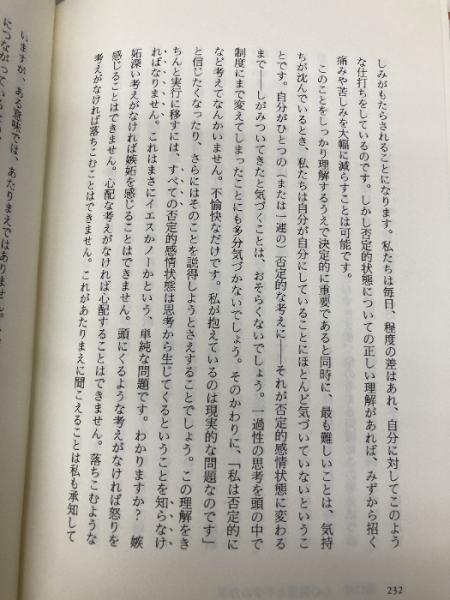 しみがもたらされることになります。私たちは毎日、程度の差はあれ、自分に対してこのよう
な仕打ちをしているのです。しかし否定的状態についての正しい理解があれば、みずから招く
痛みや苦しみを大幅に減らすことは可能です。
このことをしっかり理解するうえで決定的に重要であると同時に、最も難しいことは、気持
ちが沈んでいるとき、私たちは自分が自分にしていることにほとんど気づいていないというこ
とです。自分がひとつの（または一連の）否定的な考えに——それが否定的感情状態に変わる
まで——しがみついてきたと気づくことは、おそらくないでしょう。一過性の思考を頭の中で
制度にまで変えてしまったことにも多分気づかないでしょう。そのかわりに、「私は否定的に
など考えてなんかいません。不愉快なだけです。私が抱えているのは現実的な問題なのです」
と信じたくなったり、さらにはそのことを説得しようとさえすることでしょう。この理解をき
ちんと実行に移すには、すべての否定的感情状態は思考から生じてくるということを知らなけ
ればなりません。これはまさにイエスかノーかという、単純な問題です。わかりますか？　嫉
妬深い考えがなければ嫉妬を感じることはできません。頭にくるような考えがなければ怒りを
感じることはできません。心配な考えがなければ心配することはできません。落ちこむような
考えがなければ落ちこむことはできません。これがあたりまえに聞こえることは私も承知して
232
いますが、ある意味では、あたりまえではありませ